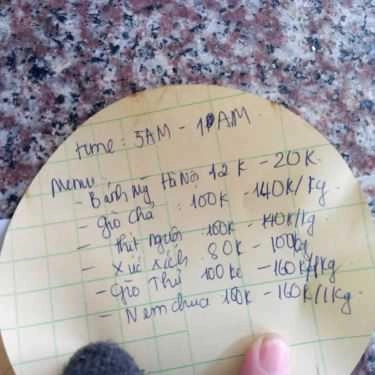 time: 5AM - 11AM
Menu
- Bánh Mỳ Hà Nội 12K - 20K
- Giò chả : 100K - 140K/kg
Thịt nguội 100K - 140K/kg
- Xúc xích 80K - 100kg
- Giò Thủ 100K - 160K/1kg
- Nem chua 100K - 160K/1kg